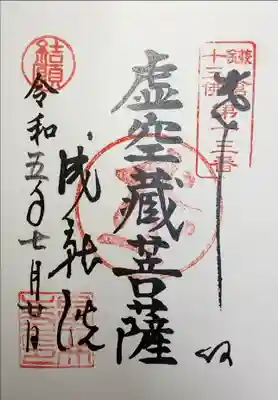 鎌倉
十三佛
第十三番
虚空蔵菩薩
成就院
結願
令和五年七月廿日